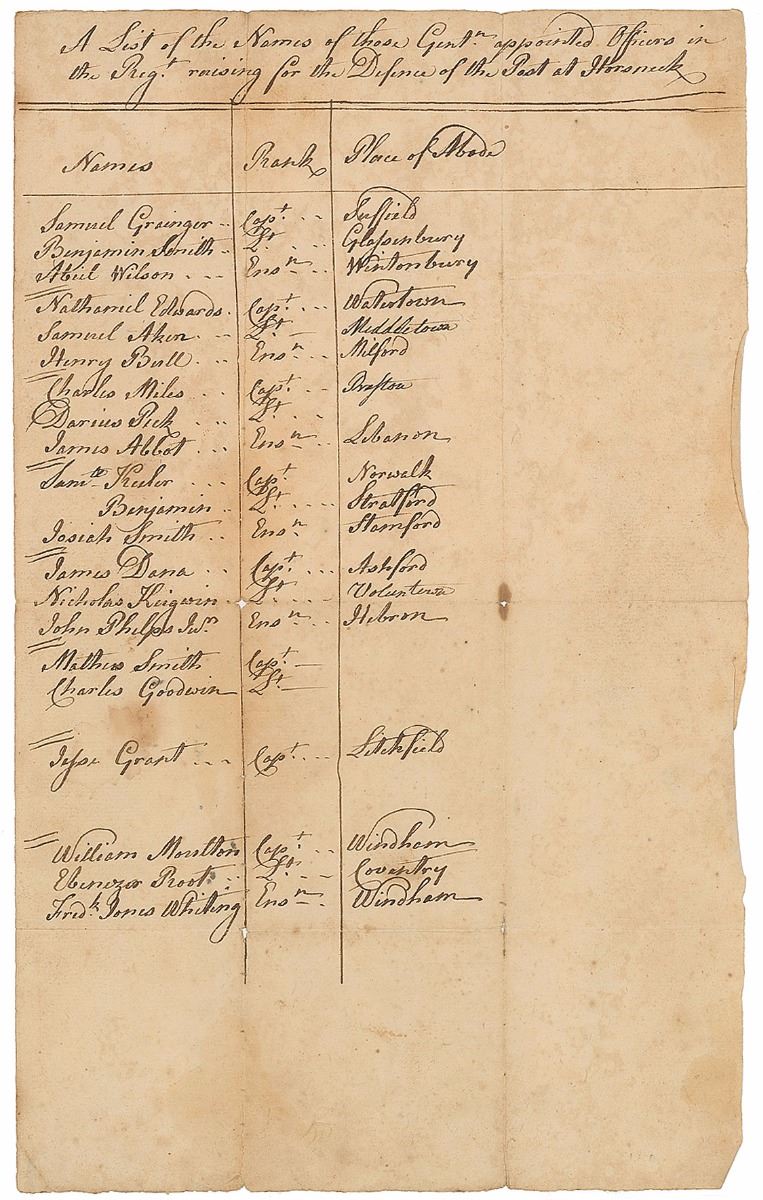 A List of the Names of those Gentn appointed Officers in
the Regt raising for the Defence of the Post at Horsneck
Names Rank Place of Abode
Samuel Grainger Capt Suffield
Benjamin Smith Lt Glassenbury
Abiel Wilson Ensn Wintonbury
Nathaniel Edwards Capt Watertown
Samuel Aken Lt Middletown
Henry Bull Ensn Milford
Charles Miles Capt Preston
Darius Peck Lt
James Abbot Ensn Lebanon
Saml Keeler Capt Norwalk
Benjamin Lt Stratford
Josiah Smith Ensn Stamford
James Dana Capt Ashford
Nicholas Keigwin Lt Voluntown
John Phelps Junr Ensn Hebron
Mathew Smith Capt
Charles Goodwin Lt
Jesse Grant Capt Litchfield
William Moulton Capt Windham
Ebenezer Root Lt Coventry
Fredk Jones Whiting Ensn Windham